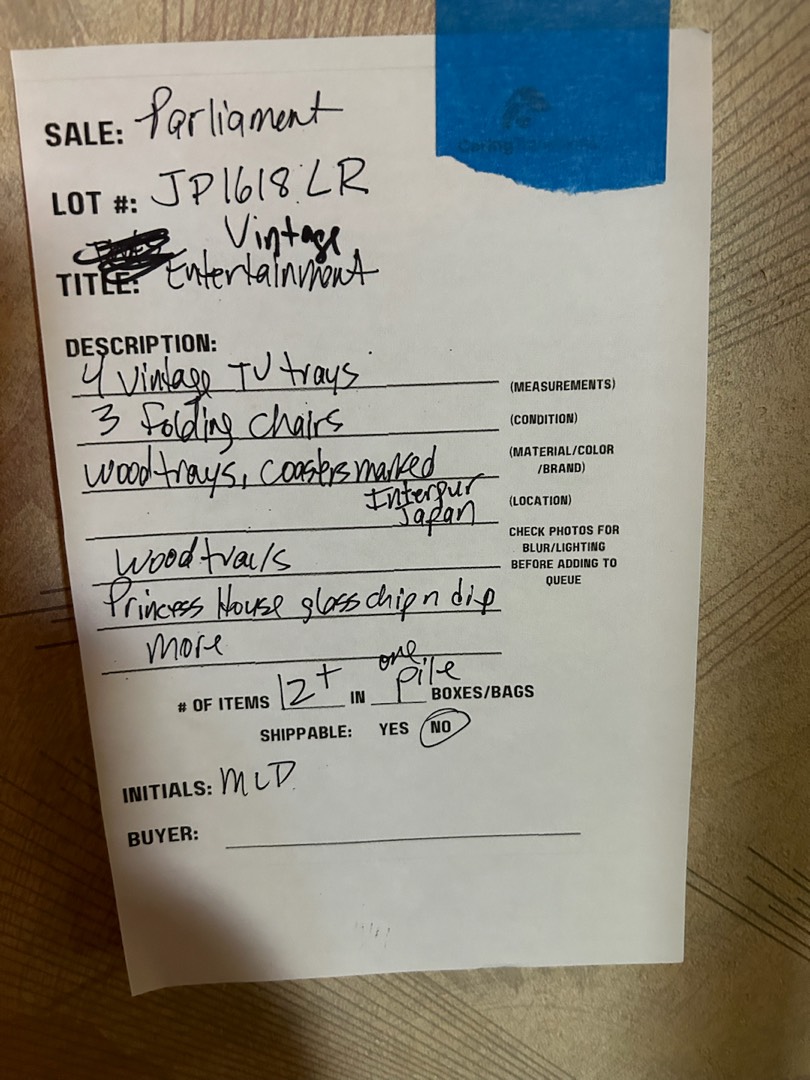 SALE: Parliament
LOT #: JP1618 LR
Vintage
TITLE: Entertainment
DESCRIPTION:
4 Vintage TV trays
(MEASUREMENTS)
3 Folding chairs
(CONDITION)
wood trays, coasters marked
(MATERIAL/COLOR
/BRAND)
Interpur
Japan
(LOCATION)
CHECK PHOTOS FOR
BLUR/LIGHTING
BEFORE ADDING TO
QUEUE
wood
Princess House glass chip n dip
more
# OF ITEMS 12+ IN one pile BOXES/BAGS
SHIPPABLE: YES NO
INITIALS: MLD
BUYER: